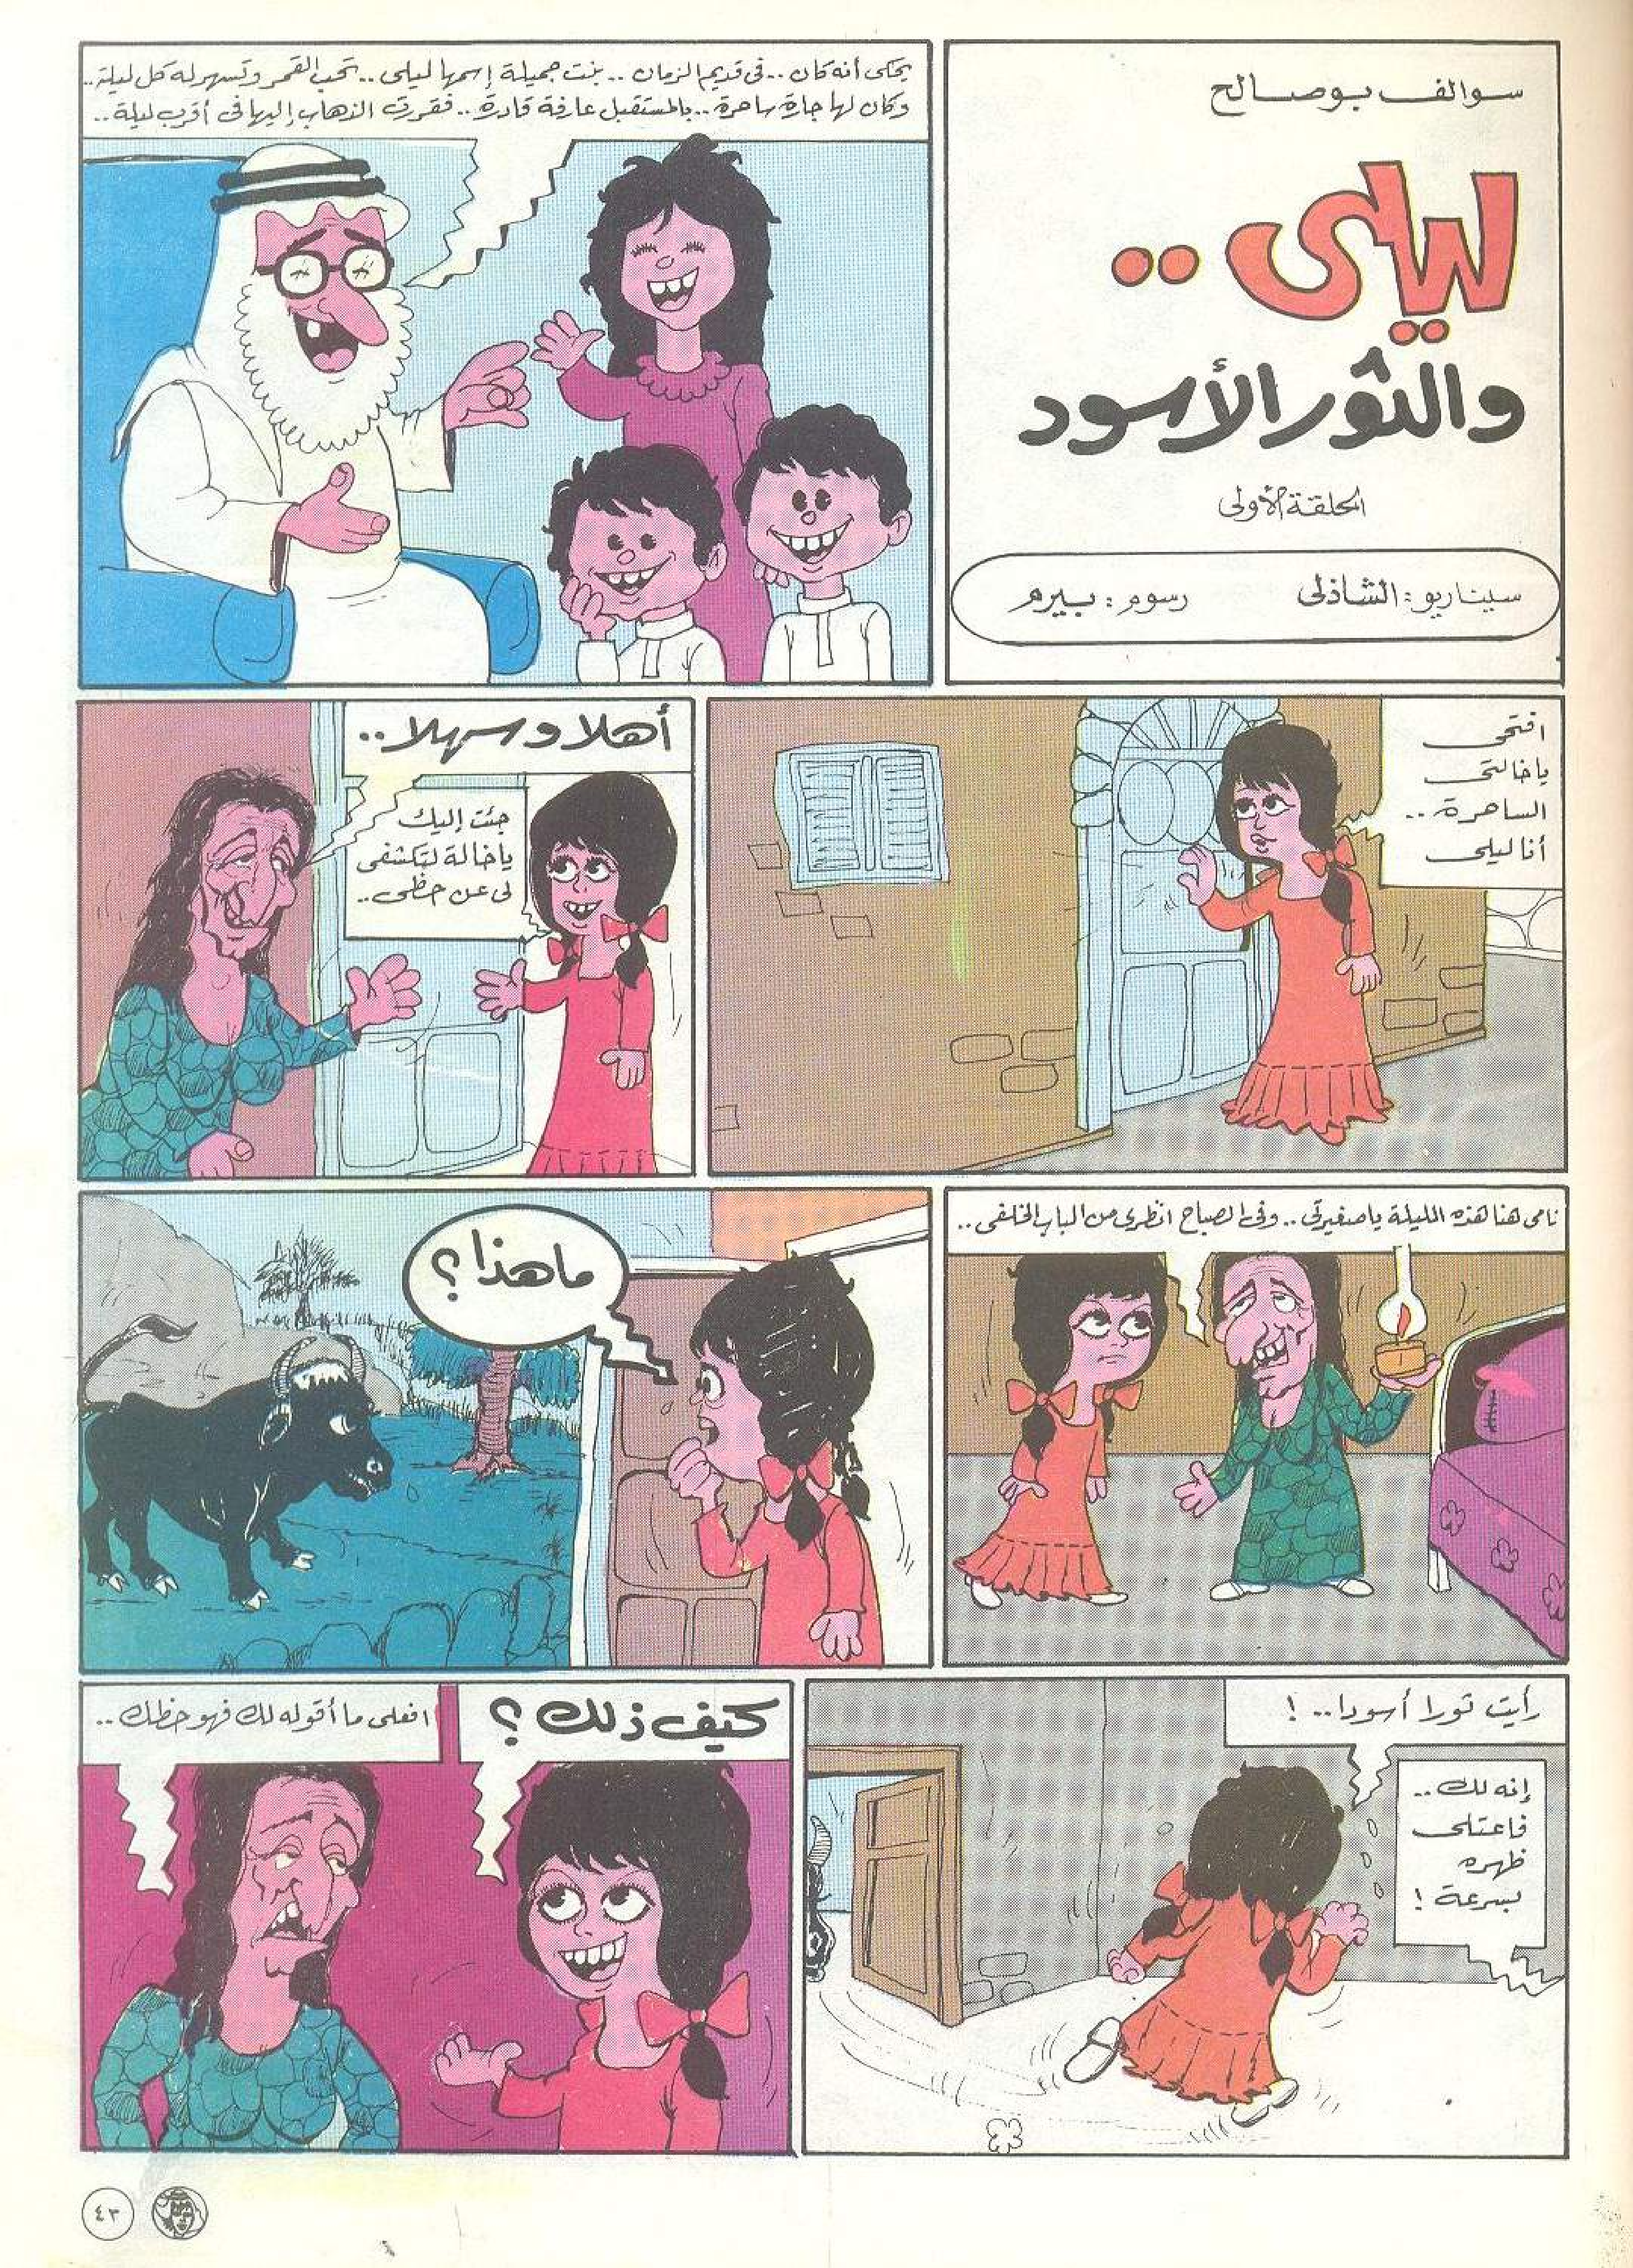 سوالف بوصالح
ليلى ..
والثور الأسود
الحلقة الأولى
سيناريو : الشاذلى
رسوم : بيرم
يحكى أنه كان .. فى قديم الزمان .. بنت جميلة إسمها ليلى .. تحب القمر وتسهر له كل ليلة ..
وكان لها جارة ساحرة .. بالمستقبل عارفة قادرة .. فقررت الذهاب إليها فى أقرب ليلة ..
افتحى
ياخالتى
الساحرة ..
أنا ليلى
أهلا وسهلا ..
جئت إليك
ياخالة لتكشفى
لى عن حظى ..
نامى هنا هذه الليلة ياصغيرتى .. وفى الصباح انظرى من الباب الخلفى ..
ما هذا ؟
رأيت ثورا أسودا .. !
إنه لك ..
فاعتلى
ظهره
بسرعة !
كيف ذلك ؟
افعلى ما أقوله لك فهو حظك ..
٤٣